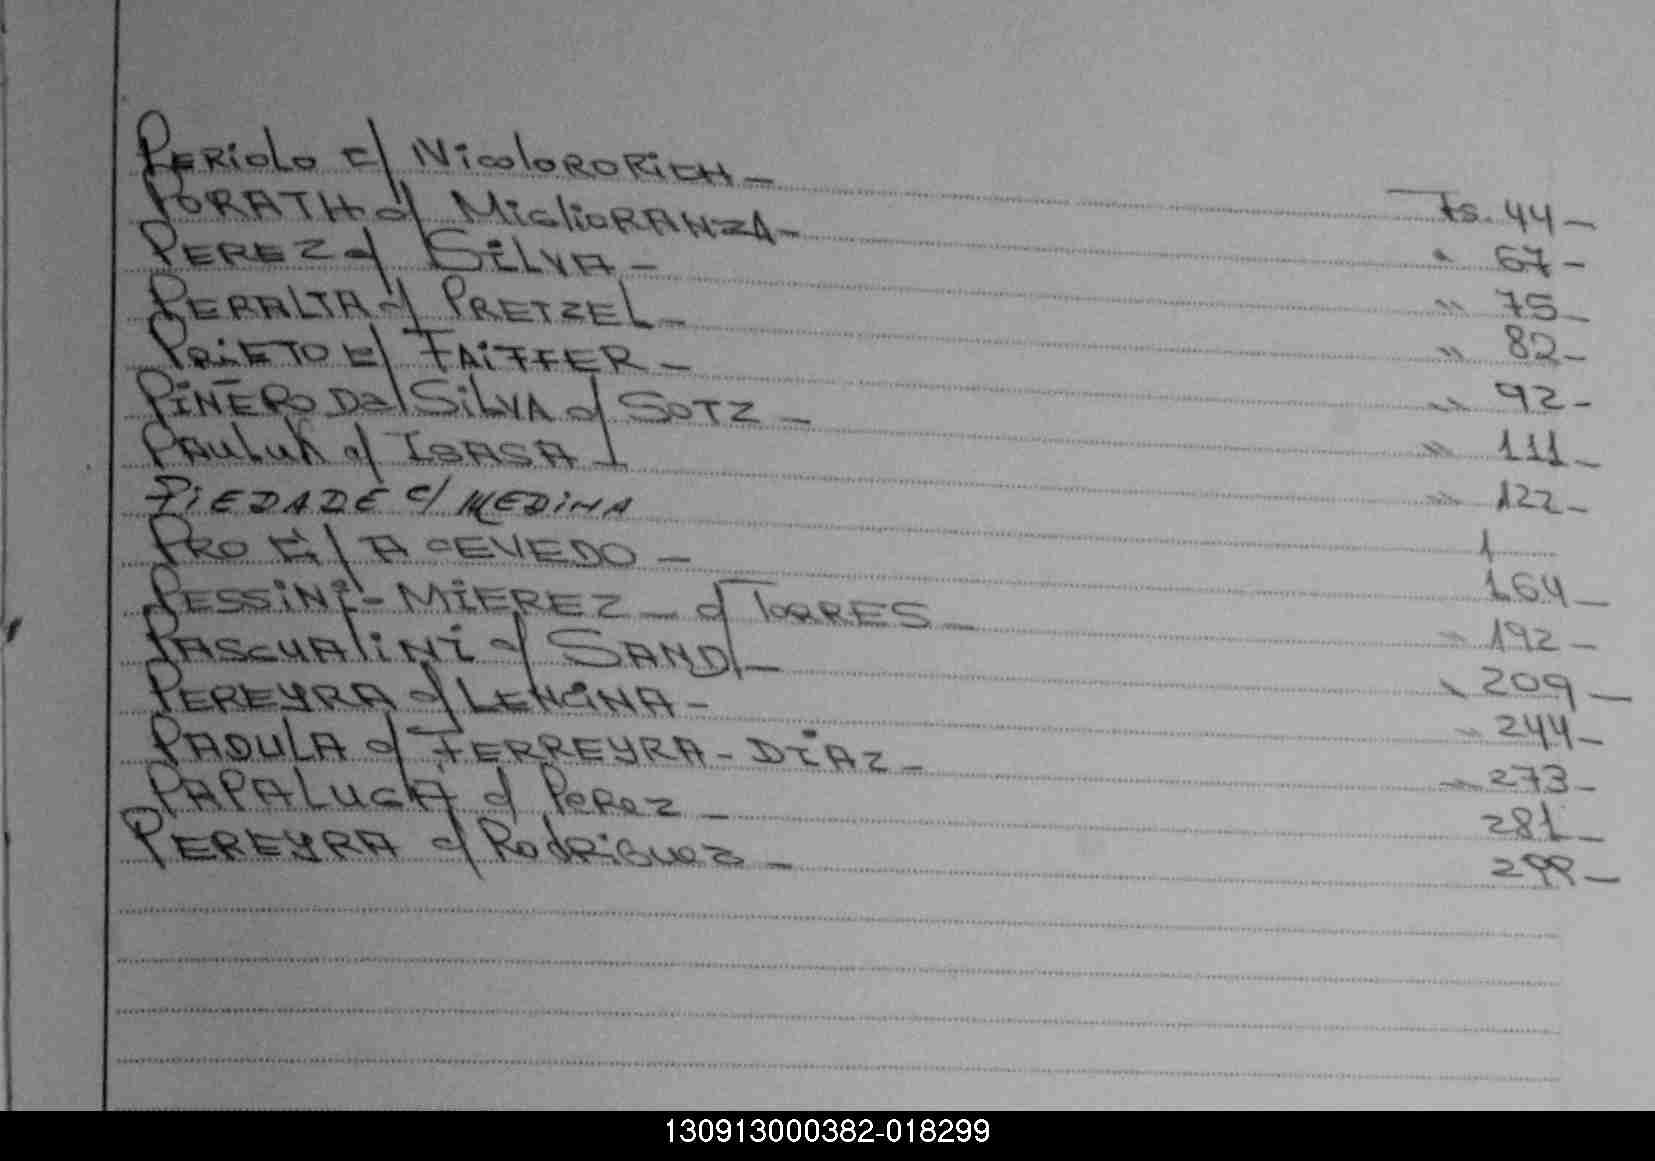 PERIOLO c/ NicoloRORiCH - Fs. 44 -
PORATH c/ MiglioRANZA - " 67 -
PEREZ c/ SILVA - " 75 -
PERALTA c/ PRETZEL - " 82 -
PRIETO c/ FAIFFER - " 92 -
PIÑERO Da SILVA c/ SOTZ - " 111 -
PAULUK c/ IBASA - " 122 -
PIEDADE c/ MEDINA 1
PRO c/ ACEVEDO - 164 -
PESSINI - MIEREZ - c/ TORRES - " 192 -
PASCUALINI c/ SAND - " 209 -
PEREYRA c/ LENCINA - " 244 -
PADULA c/ FERREYRA - DIAZ - " 273 -
PAPALUCA c/ Perez - 281 -
PEREYRA c/ Rodriguez - 299 -
130913000382-018299